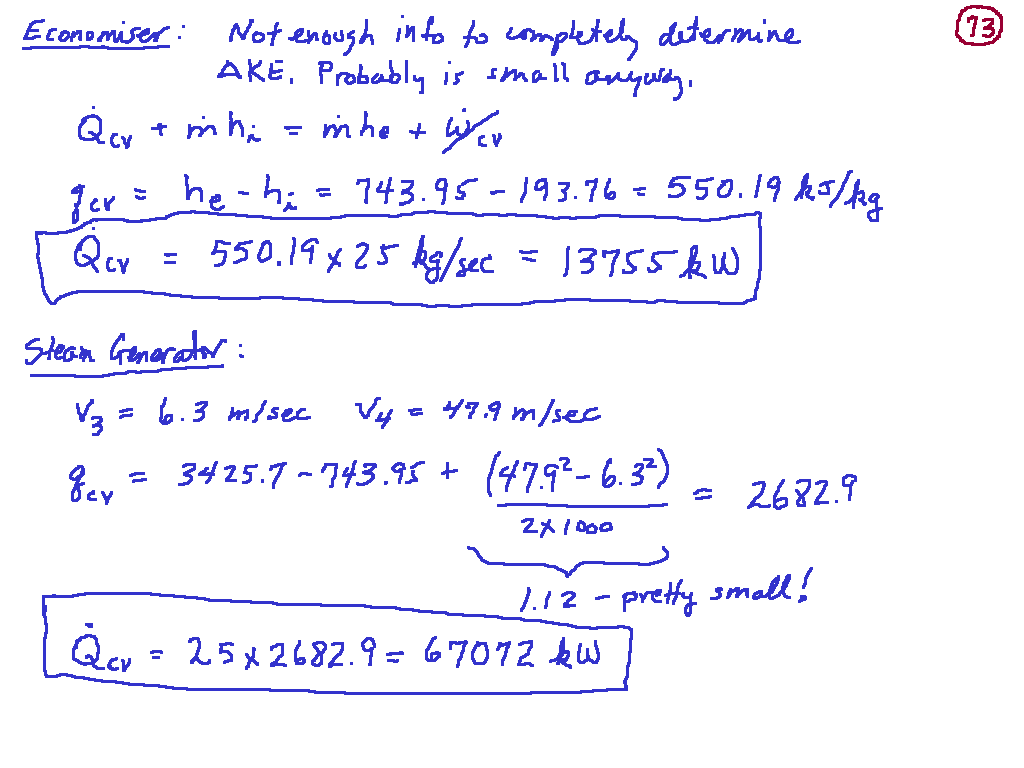 Economiser: Not enough info to completely determine
73
ΔKE. Probably is small anyway.
Q̇cv + ṁhi = ṁhe + Ẇcv
qcv = he - hi = 743.95 - 193.76 = 550.19 kJ/kg
Q̇cv = 550.19 x 25 kg/sec = 13755 kW
Steam Generator:
V3 = 6.3 m/sec V4 = 47.9 m/sec
qcv = 3425.7 - 743.95 + (47.9² - 6.3²) = 2682.9
2 x 1000
1.12 - pretty small!
Q̇cv = 25 x 2682.9 = 67072 kW